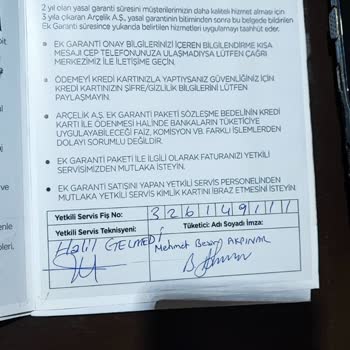 2 yıl olan yasal garanti süresini müşterilerimizin daha kaliteli hizmet almaları için
3 yıla çıkaran Arçelik A.Ş., yasal garantinin bitiminden sonra bu belgede bildirilen
Ek Garanti süresince yukarıda belirtilen hizmetleri uygulamayı taahhüt eder.
• EK GARANTİ ONAY BİLGİLERİNİZİ İÇEREN BİLGİLENDİRME KISA
MESAJI CEP TELEFONUNUZA ULAŞMADIYSA LÜTFEN ÇAĞRI
MERKEZİMİZ İLE İLETİŞİME GEÇİN.
• ÖDEMEYİ KREDİ KARTINIZLA YAPTIYSANIZ GÜVENLİĞİNİZ İÇİN
KREDİ KARTINIZIN ŞİFRE/GİZLİLİK BİLGİLERİNİ LÜTFEN
PAYLAŞMAYIN.
• ARÇELİK A.Ş. EK GARANTİ PAKETİ SÖZLEŞME BEDELİNİN KREDİ
KARTI İLE ÖDENMESİ HALİNDE BANKALARIN TÜKETİCİYE
UYGULAYABİLECEĞİ FAİZ, KOMİSYON VB. FARKLI İŞLEMLERDEN
DOLAYI SORUMLU DEĞİLDİR.
• EK GARANTİ PAKETİ İLE İLGİLİ OLARAK FATURANIZI YETKİLİ
SERVİSİMİZDEN MUTLAKA İSTEYİN.
• EK GARANTİ SATIŞINI YAPAN YETKİLİ SERVİS PERSONELİNDEN
MUTLAKA YETKİLİ SERVİS KİMLİK KARTINI İBRAZ ETMESİNİ İSTEYİN.
Yetkili Servis Fiş No: 3 2 6 1 4 9 1 1 1
Yetkili Servis Teknisyeni: Tüketici: Adı Soyadı İmza:
Halil GELMEDİ Mehmet AKPINAR